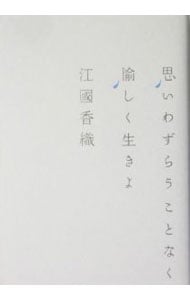 思いわずらうことなく
愉しく生きよ
江國香織